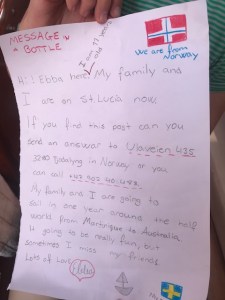 MESSAGE
IN A
BOTTLE
We are from
Norway
Hi! Ebba here. My family and
I am 11 years old
I are on St Lucia now
If you find this post can you
send an answer to
in Norway or you
can call
My family and I are going to
sail in one year around the half
world from Martinique to Australia
It going to be really fun, but
sometimes I miss my friends
Lots of love Ebba